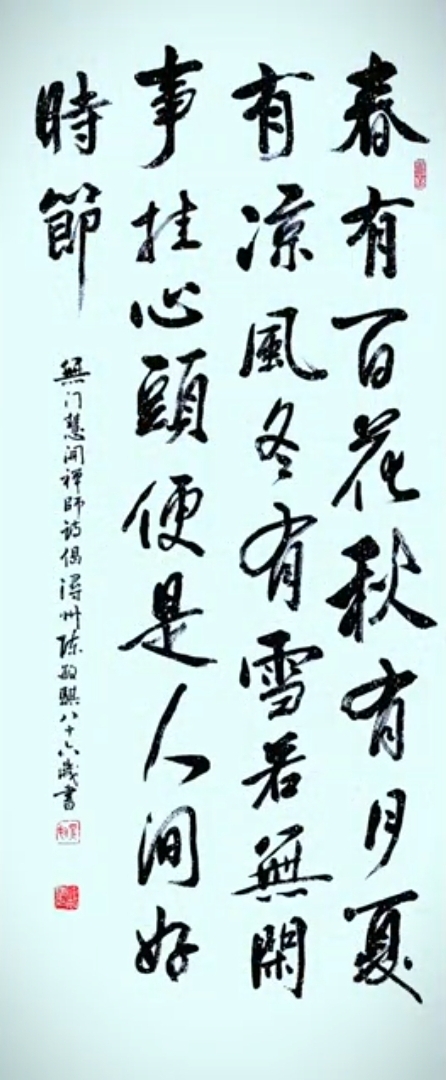 春有百花秋有月夏
有涼風冬有雪若無閑
事挂心頭便是人间好
時節
無门慧開禪師詩偈漳州陈敏騏八十六歲書